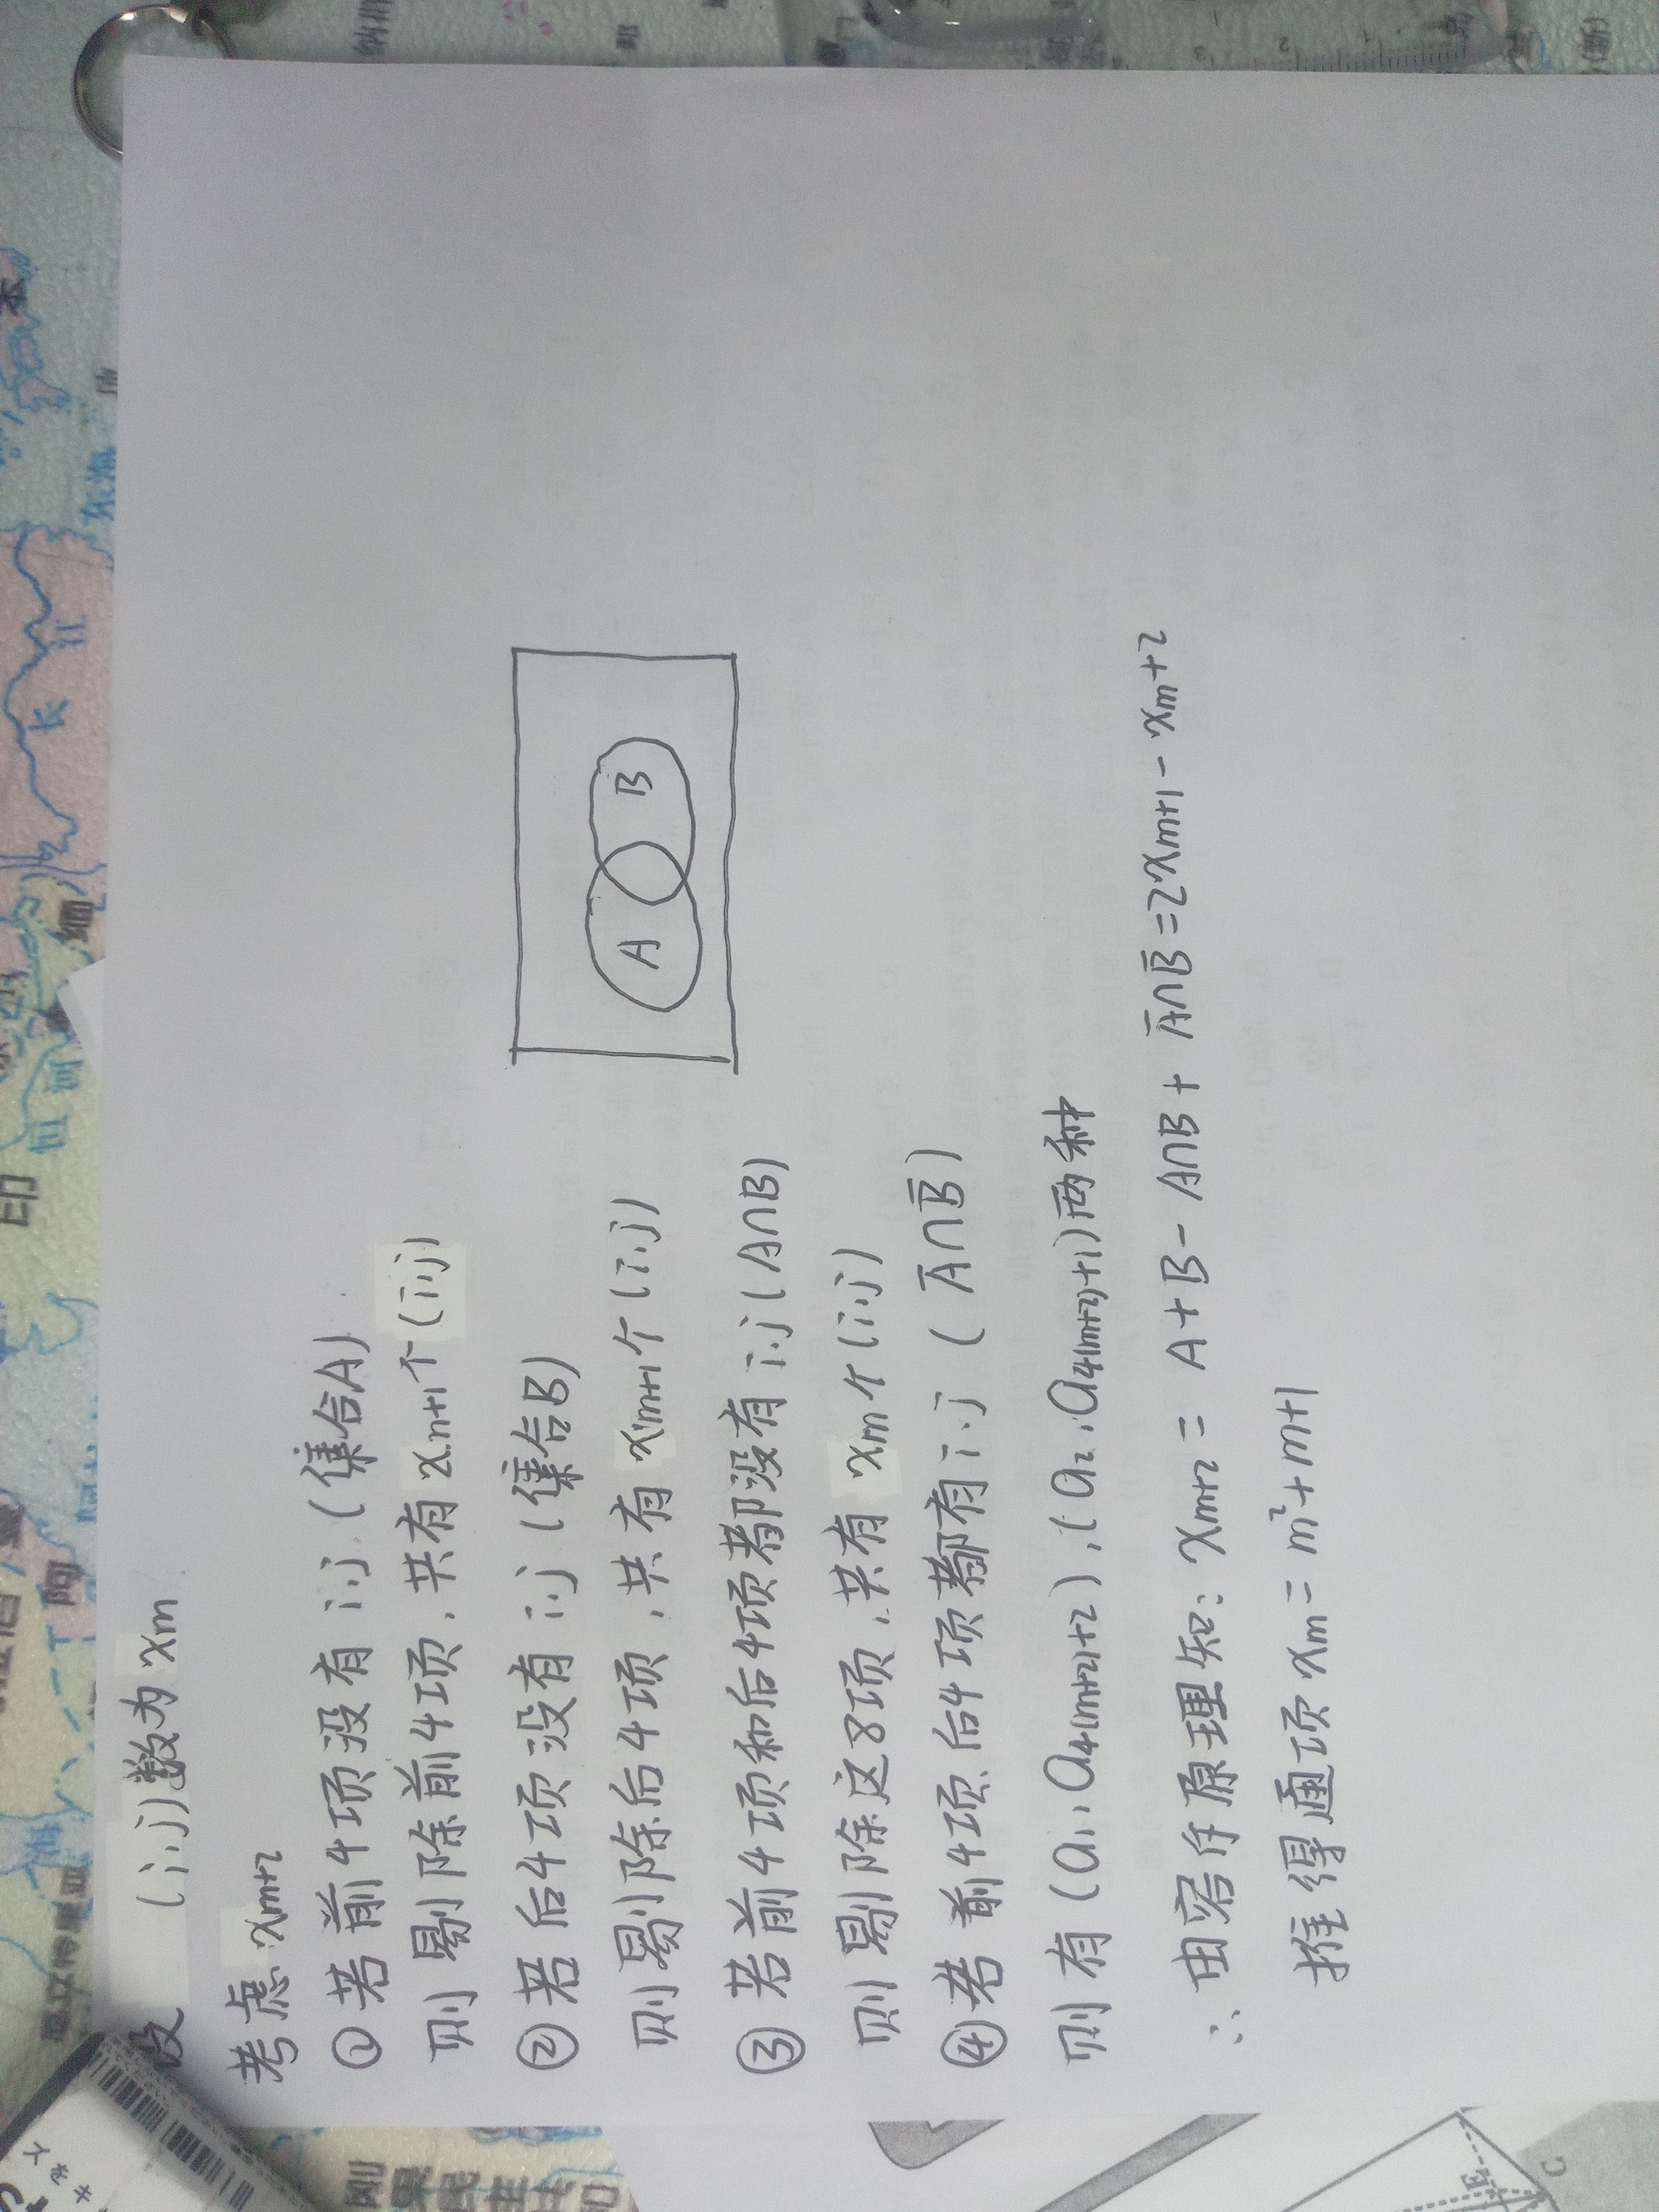 设 (i,j)数为xm
考虑xm+2
①若前4项没有i,j(集合A)
则易除前4项,共有xm+1个(i,j)
②若后4项没有i,j(集合B)
则易除后4项,共有xm+1个(i,j)
③若前4项和后4项都没有i,j(A∩B)
则易除这8项,共有xm个(i,j)
④若前4项、后4项都有i,j(Ā∩B̄)
则有(a1,a4(m+2)+2),(a2,a4(m+2)+1)两种
∴由容斥原理知:xm+2=A+B-A∩B+Ā∩B̄=2xm+1-xm+2
推得通项xm=m²+m+1
A
B
印
长
江
缅
阿
C